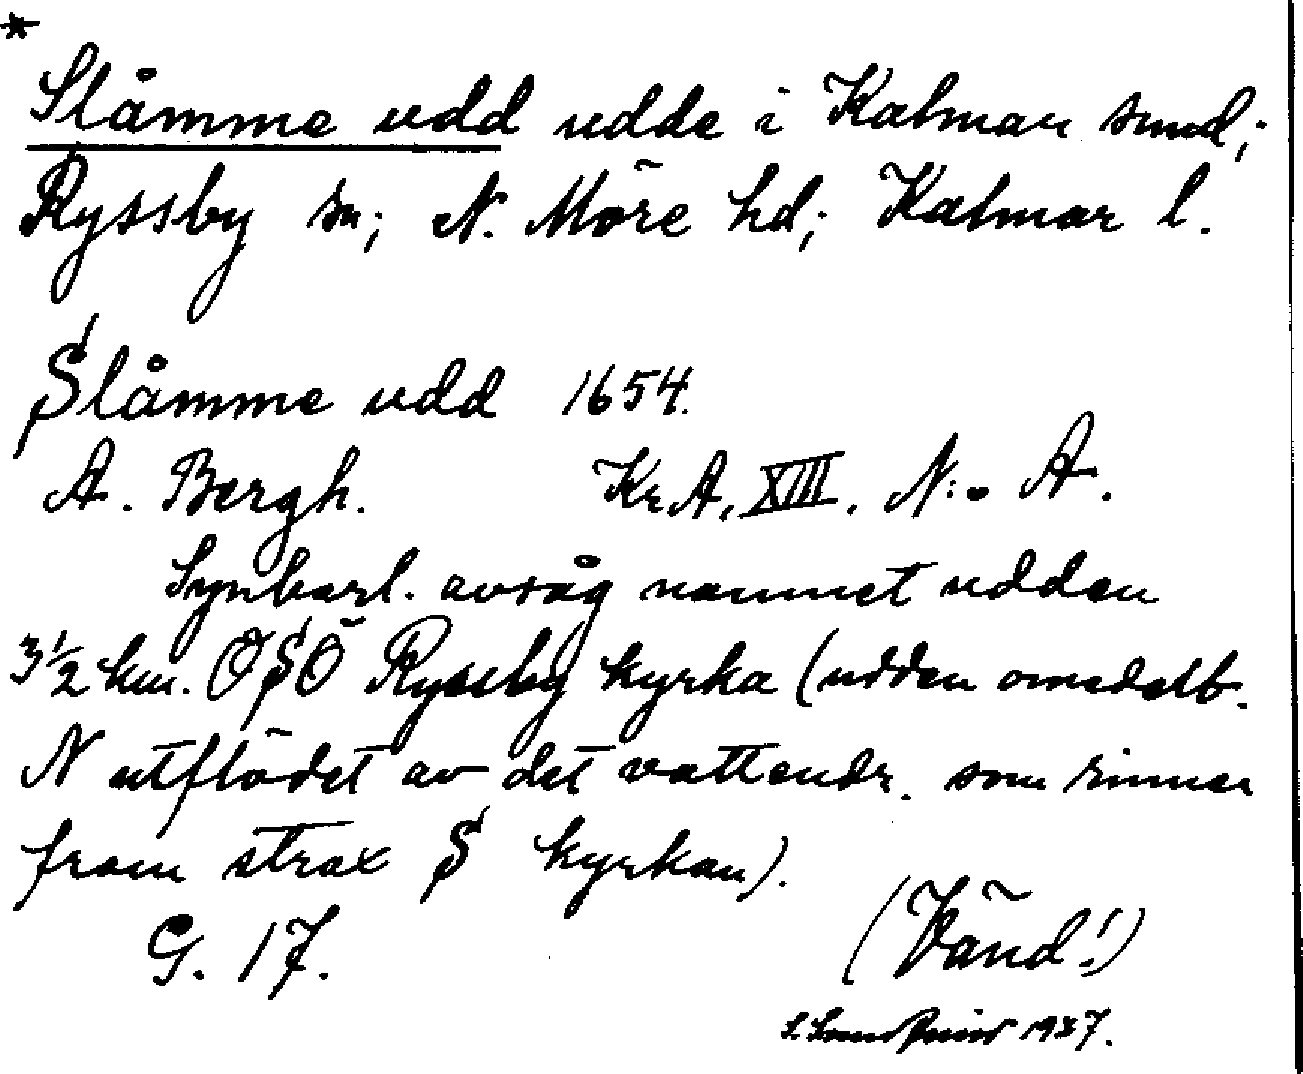 *
Slåmme udd udde i Kalmar sund;
Ryssby sn; N. Möre hd; Kalmar l.
Slåmme udd 1654.
A. Bergh. KrA, XIII. N:o A.
Synbarl. avsåg namnet udden
3½ km. OSO Ryssby kyrka (udden omedelb.
N utflödet av det vattendr. som rinner
fram strax S kyrkan).
G. 17. (Vänd!)
1937.